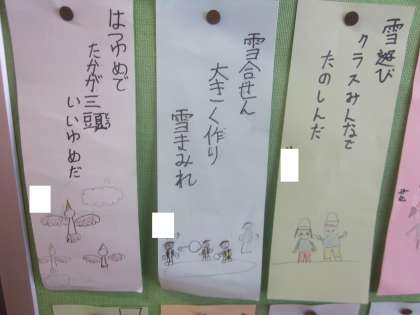 雪遊び
クラスみんなで
たのしんだ
雪合せん
大きく作り
雪まみれ
はつゆめで
たかが三頭
いいゆめだ